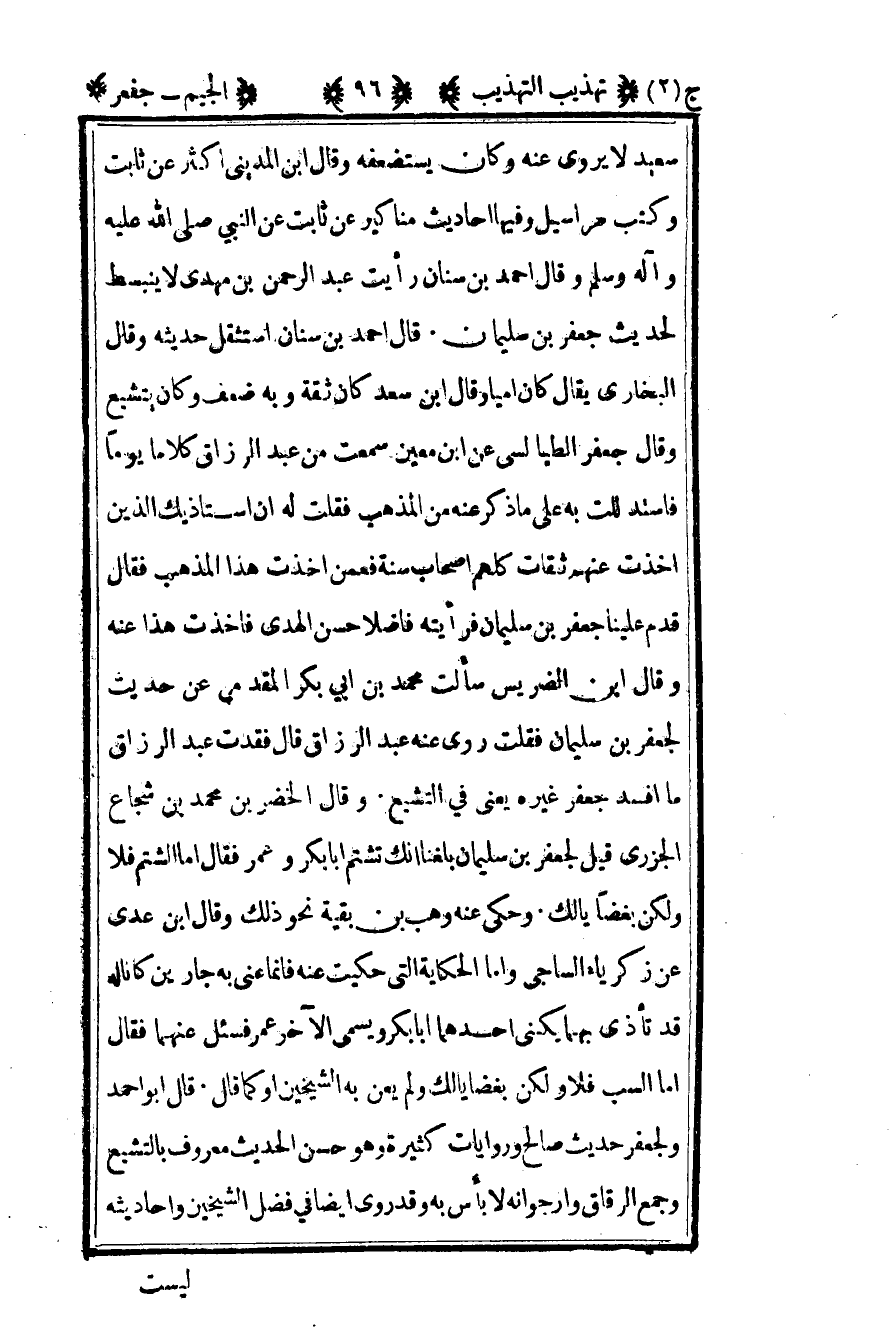 ج (٢) تهذيب التهذيب ٩٦ الجيم ـ جعفر
سعيد لا يروى عنه وكان يستضعفه وقال ابن المدينى اكثر عن ثابت
وكتب مراسيل وفيها احاديث مناكير عن ثابت عن النبي صلى الله عليه
و آله وسلم و قال احمد بن سنان رأيت عبد الرحمن بن مهدى لا ينبسط
لحديث جعفر بن سليمان ٠ قال احمد بن سنان استثقل حديثه وقال
البخارى يقال كان اميا وقال ابن سعد كان ثقة و به ضعف وكان يتشيع
وقال جعفر الطيالسى عن ابن معين سمعت من عبد الرزاق كلاما يوماً
فاستدللت به على ما ذكر عنه من المذهب فقلت له ان استاذيك الذين
اخذت عنهم ثقات كلهم اصحاب سنة فعمن اخذت هذا المذهب فقال
قدم علينا جعفر بن سليمان فرأيته فاضلا حسن الهدى فاخذت هذا عنه
و قال ابن الضريس سألت محمد بن ابي بكر المقدمي عن حديث
لجعفر بن سليمان فقلت روى عنه عبد الرزاق قال فقدت عبد الرزاق
ما افسد جعفر غيره يعنى في التشيع ٠ و قال الخضر بن محمد بن شجاع
الجزرى قيل لجعفر بن سليمان بلغنا انك تشتم ابا بكر و عمر فقال اما الشتم فلا
ولكن بغضاً يالك ٠ وحكى عنه وهب بن بقية نحو ذلك وقال ابن عدى
عن زكرياء الساجى واما الحكاية التى حكيت عنه فانما عنى به جارين كانا له
قد تأذى بهما يكنى احدهما ابا بكر ويسمى الآخر عمر فسئل عنهما فقال
اما السب فلا و لكن بغضا يالك ولم يعن به الشيخين او كما قال ٠ قال ابو احمد
ولجعفر حديث صالح وروايات كثيرة وهو حسن الحديث معروف بالتشيع
وجمع الرقاق وارجو انه لا بأس به وقد روى ايضا في فضل الشيخين واحاديثه
ليست